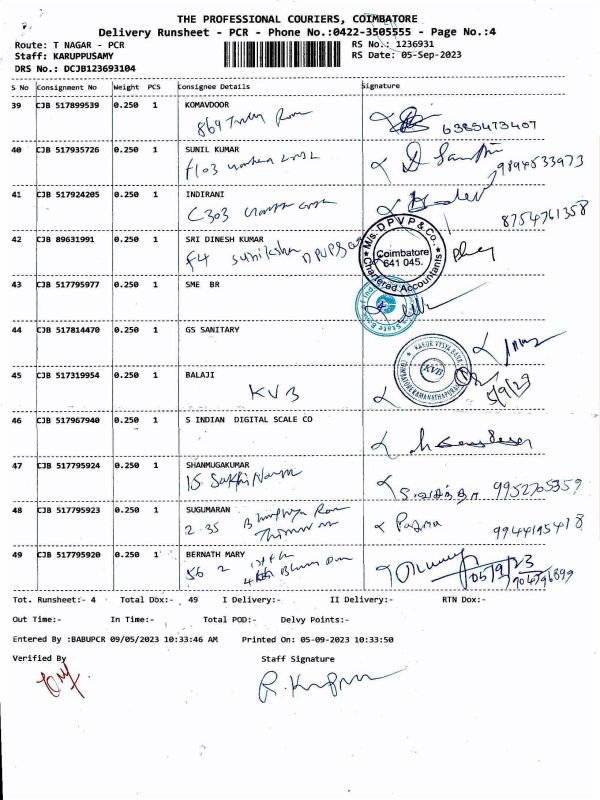 THE PROFESSIONAL COURIERS, COIMBATORE
Delivery Runsheet - PCR - Phone No.:0422-3505555 - Page No.:4
Route: T NAGAR - PCR
RS No.: 1236931
Staff: KARUPPUSAMY
RS Date: 05-Sep-2023
DRS No.: DCJB123693104
S No Consignment No Weight PCS Consignee Details Signature
39 CJB 517899539 0.250 1 KOMAVDOOR
869
6385473407
40 CJB 517935726 0.250 1 SUNIL KUMAR
F103
9894533973
41 CJB 517924205 0.250 1 INDIRANI
C303
8754761358
42 CJB 89631991 0.250 1 SRI DINESH KUMAR
F4
M/s. DPVP & Co.
Coimbatore
641 045.
Chartered Accountants
43 CJB 517795977 0.250 1 SME BR
State Bank of
44 CJB 517814470 0.250 1 GS SANITARY
KARUR VYSYA BANK
KVB
45 CJB 517319954 0.250 1 BALAJI
KVB
5/9/23
46 CJB 517967940 0.250 1 S INDIAN DIGITAL SCALE CO
47 CJB 517795924 0.250 1 SHANMUGAKUMAR
15 Sakthi Nagar
9952705359
48 CJB 517795923 0.250 1 SUGUMARAN
2.35
Padma
9944195418
49 CJB 517795920 0.250 1 BERNATH MARY
56 2
05/9/23
Tot. Runsheet:- 4 Total Dox:- 49 I Delivery:- II Delivery:- RTN Dox:-
Out Time:- In Time:- Total POD:- Delvy Points:-
Entered By :BABUPCR 09/05/2023 10:33:46 AM Printed On: 05-09-2023 10:33:50
Verified By Staff Signature